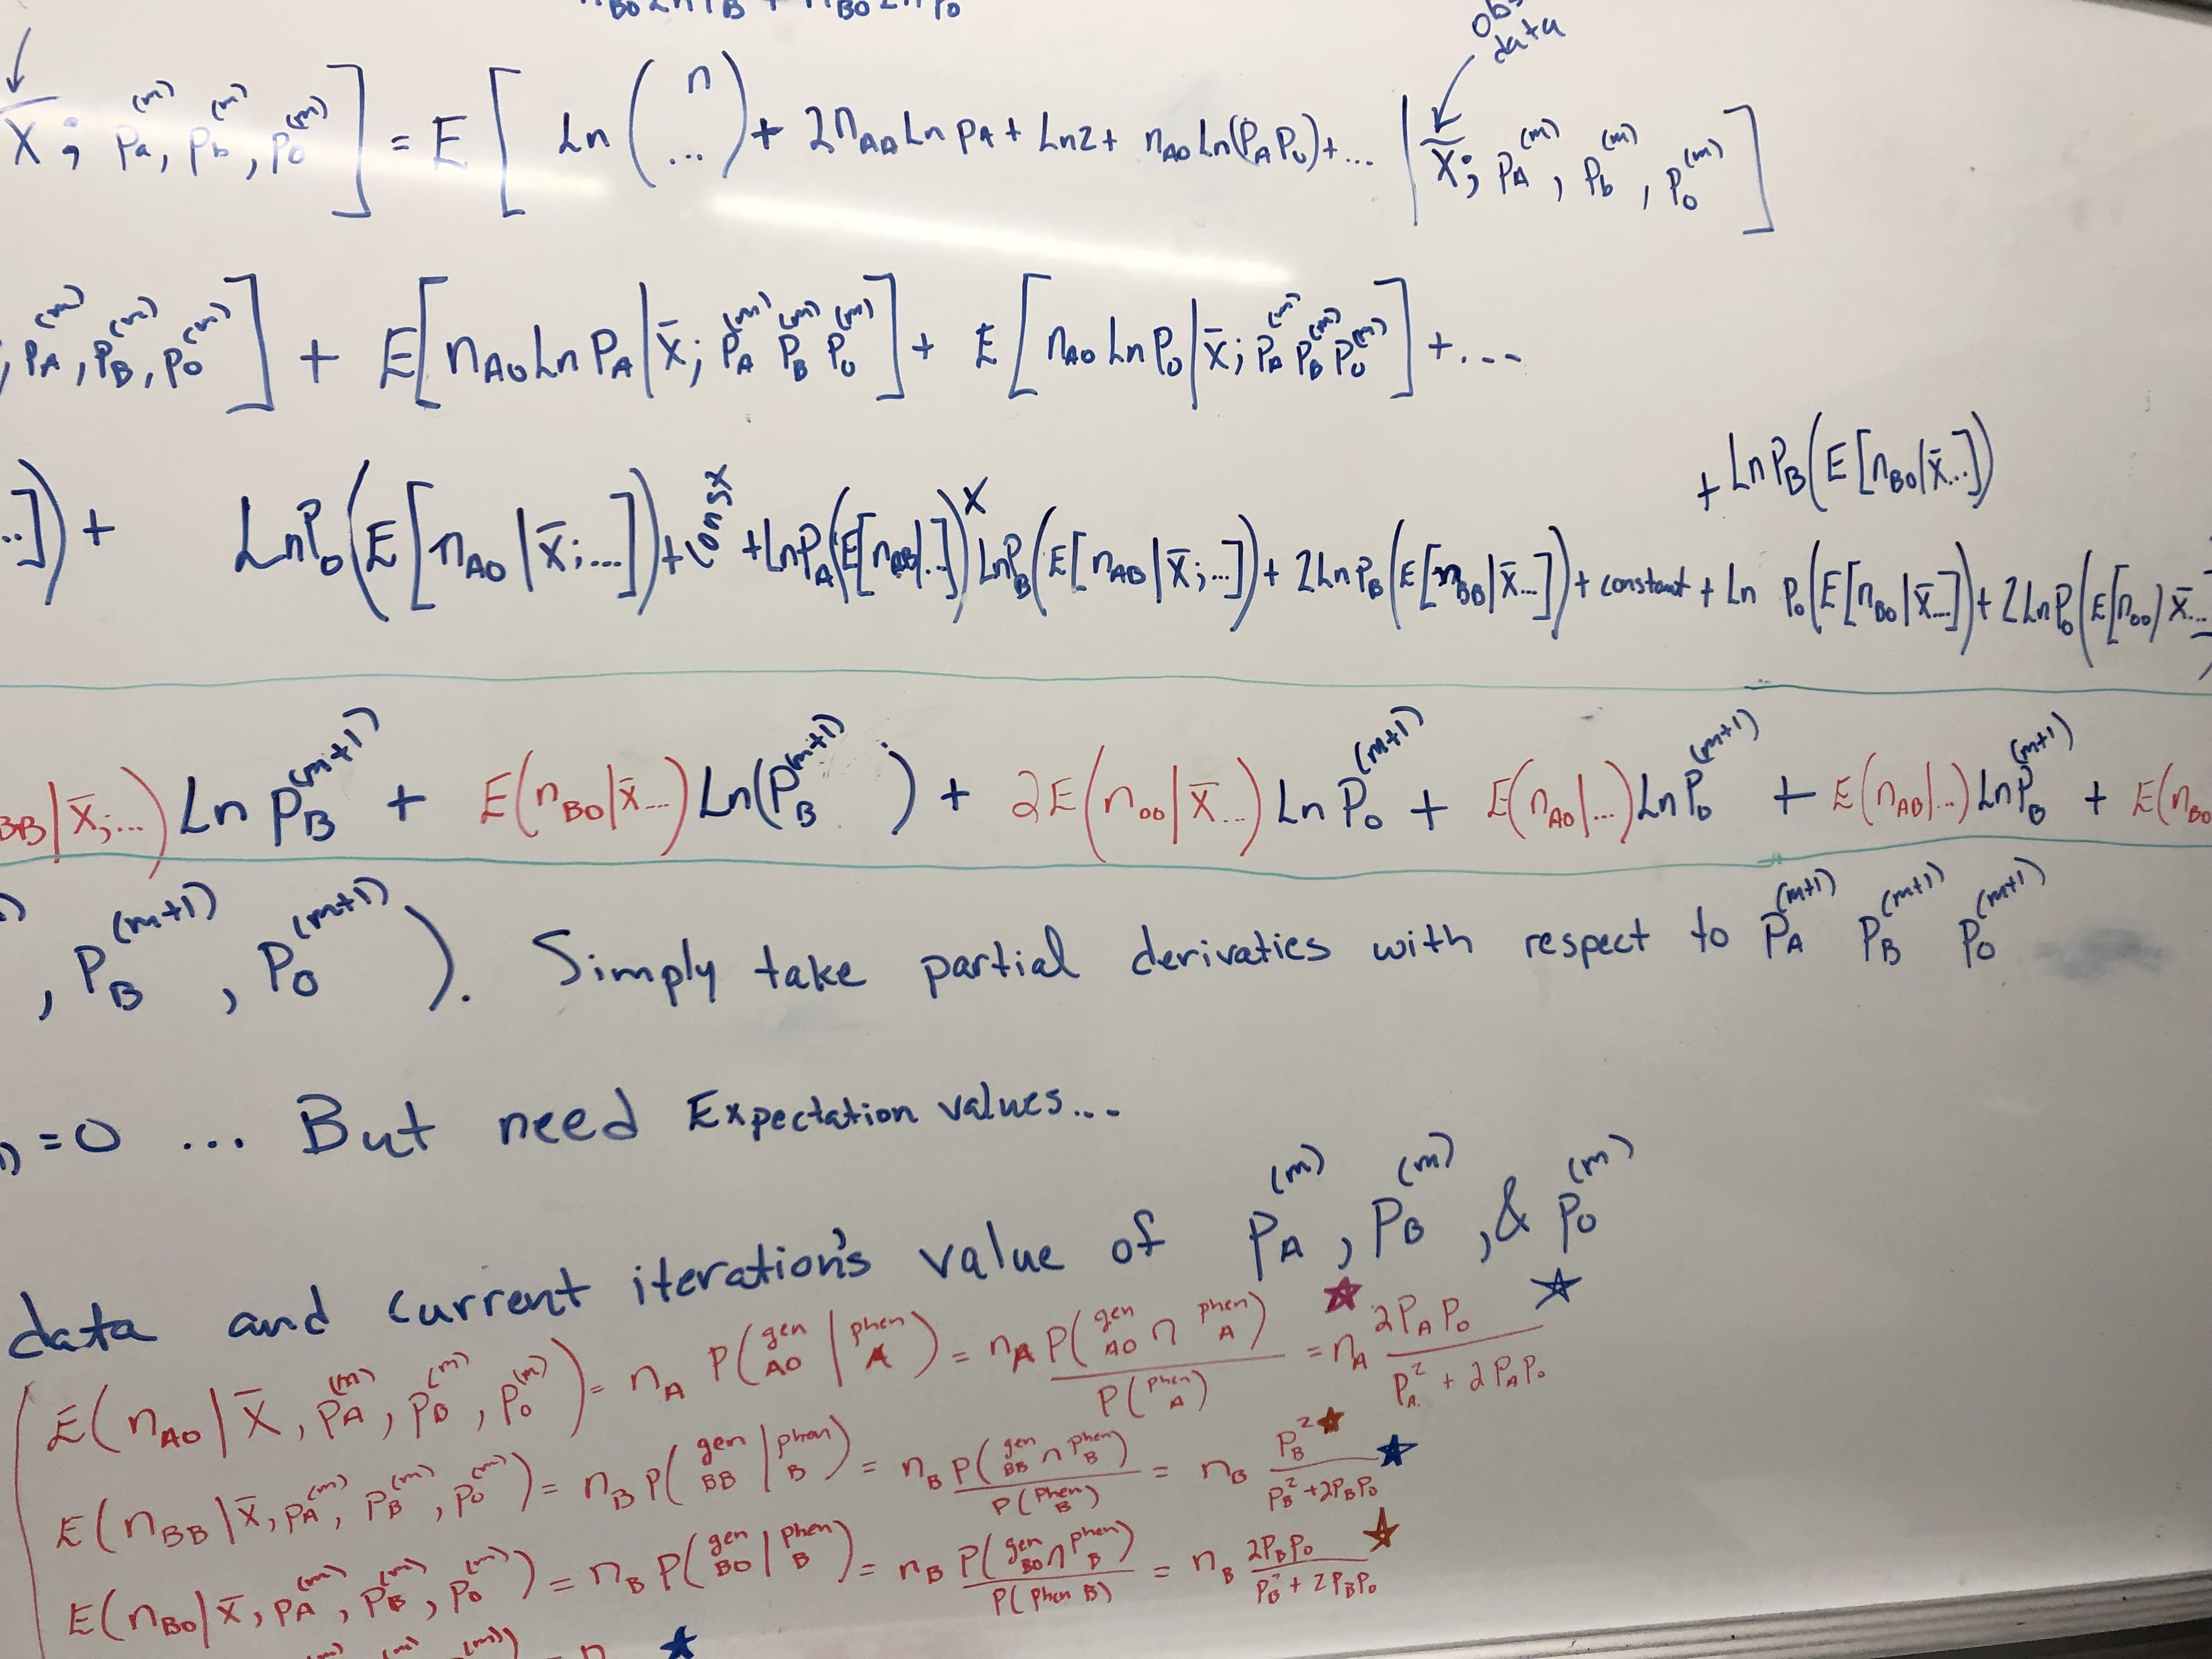 n_BO Ln P_B + n_BO Ln P_O
obs data
X̄; p_a^(m), p_b^(m), p_o^(m)] = E[Ln(n ...) + 2n_AA Ln p_A + Ln2 + n_AO Ln(P_A P_O) + ... | X̄; p_A^(m), p_b^(m), p_o^(m)]
, p_A^(m), p_B^(m), p_o^(m)] + E[n_AO Ln P_A | x̄; P_A^(m) P_B^(m) P_O^(m)] + E[n_AO Ln P_O | x̄; P_A^(m) P_B^(m) P_O^(m)] + ....
+ Ln P_B (E[n_BO | x̄...])
..]) + Ln P_O (E[n_AO | x̄;...]) + const + Ln P_A (E[n_AB | ..]) Ln P_B (E[n_AB | x̄;...]) + 2Ln P_B (E[n_BB | x̄...]) + constant + Ln P_O (E[n_BO | x̄...]) + 2Ln P_O (E[n_OO | x̄...
BB | x̄;...) Ln P_B^(m+1) + E(n_BO | x̄...) Ln(P_B^(m+1)) + 2E(n_OO | x̄...) Ln P_O^(m+1) + E(n_AO | ...) Ln P_O^(m+1) + E(n_AB | ...) Ln P_B^(m+1) + E(n_BO
, P_B^(m+1), P_O^(m+1)). Simply take partial derivaties with respect to P_A^(m+1) P_B^(m+1) P_O^(m+1)
=0 ... But need Expectation values...
data and current iteration's value of P_A^(m), P_B^(m), & P_O^(m)
E(n_AO | X̄, p_A^(m), p_B^(m), p_O^(m)) = n_A P(gen AO | phen A) = n_A P(gen AO ∩ phen A) / P(phen A) = n_A 2P_A P_O / P_A^2 + 2P_A P_O
E(n_BB | x̄, p_A^(m), p_B^(m), p_O^(m)) = n_B P(gen BB | phen B) = n_B P(gen BB ∩ phen B) / P(phen B) = n_B P_B^2 / P_B^2 + 2P_B P_O
E(n_BO | x̄, p_A^(m), p_B^(m), p_O^(m)) = n_B P(gen BO | phen B) = n_B P(gen BO ∩ phen B) / P(phen B) = n_B 2P_B P_O / P_B^2 + 2P_B P_O